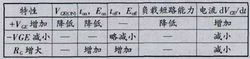 特性 V_CE(ON) t_on、E_on t_off、E_off 负载短路能力 电流 dV_CE/dt
+V_GE 增加 降低 降低 — 降低 增加
-VGE 减小 — — 略减小 — 减小
R_G 增大 — 增加 增加 — 减小